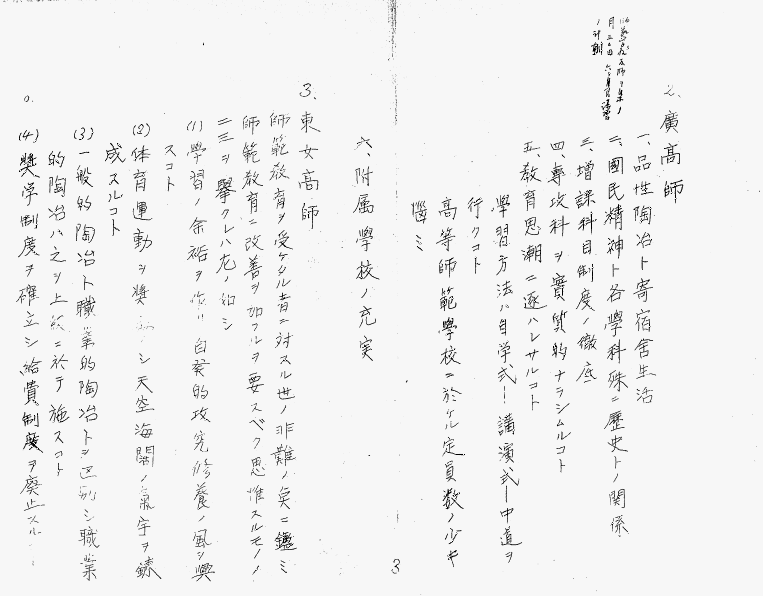 2. 廣高師
一、品性陶冶ト寄宿舎生活
二、國民精神ト各學科殊ニ歷史トノ關係
三、增課科目制度ノ徹底
四、專攻科ヲ實質的ナラシムルコト
五、教育思潮ニ逐ハレサルコト
學習方法ハ自学式ー講演式ー中道ヲ
行クコト
高等師範學校ニ於ケル定員数ノ少キ
惱ミ
六、附属學校ノ充実
3. 東女高師
師範教育ヲ受ケタル者ニ対スル世ノ非難ノ点ニ鑑ミ
師範教育ニ改善ヲ加フルヲ要スベク思惟スルモノノ
二三ヲ擧クレハ左ノ如シ
(1) 學習ノ余裕ヲ作リ自発的攻究修養ノ風ヲ興
スコト
(2) 体育運動ヲ獎シ天空海闊ノ氣宇ヲ錬
成スルコト
(3) 一般的陶冶ト職業的陶冶トヲ区別シ職業
的陶冶ハ之ヲ上級ニ於テ施スコト
(4) 獎学制度ヲ確立シ給費制度ヲ廃止スル
3